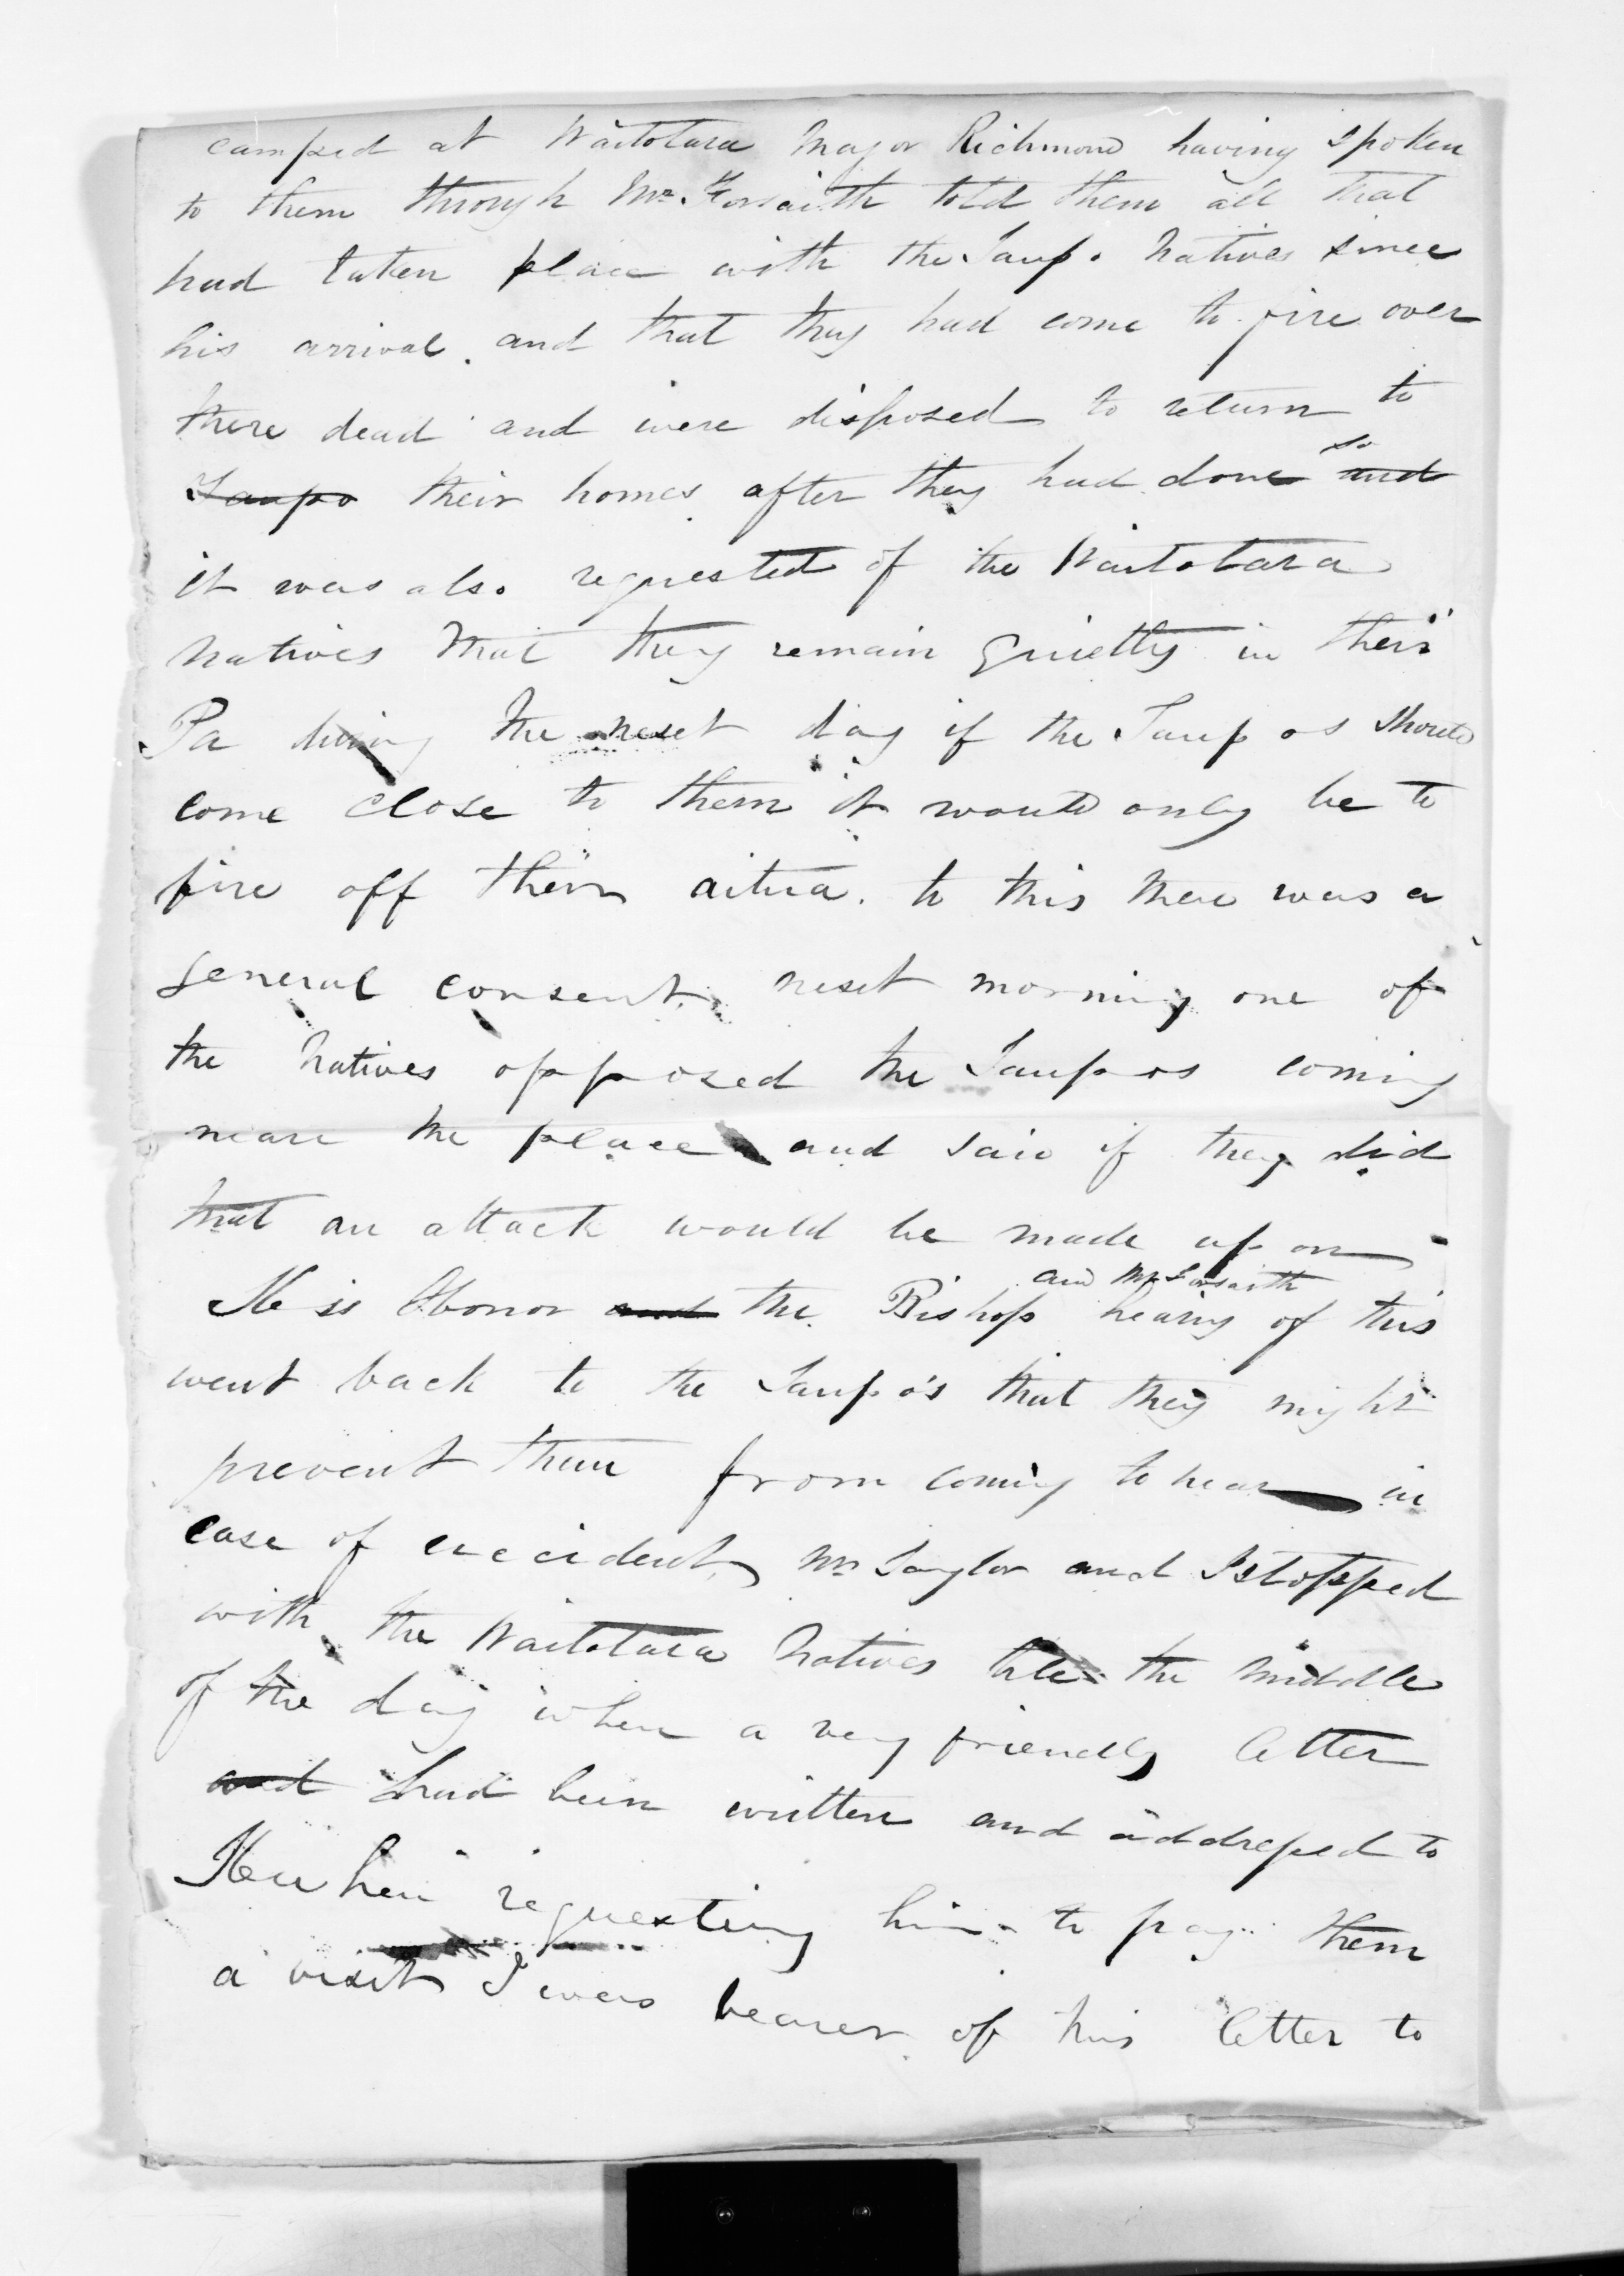 camped at Waitotara Major Richmond having spoken
to them through Mr. Forsaith told them all that
had taken place with the Taupo Natives since
his arrival. and that they had come to fire over
there dead and were disposed to return to
Taupo their homes after they had done so and
it was also requested of the Waitotara
natives that they remain quietly in their
Pa during the next day if the Taupos should
come close to them it would only be to
fire off their aitua. to this there was a
general consent, next morning one of
the Natives opposed the Taupos coming
neare the place and said if they did
that an attack would be made upon
and Mr Forsaith
He is Honor and the Bishop hearing of this
went back to the Taupo's that they might
prevent them from coming to near in
case of accident, Mr Taylor and I stopped
with the Waitotara Natives till the middle
of the day when a very friendly letter
and had been written and addressed to
Heu heu requesting him to pay them
a visit I was bearer of this letter to